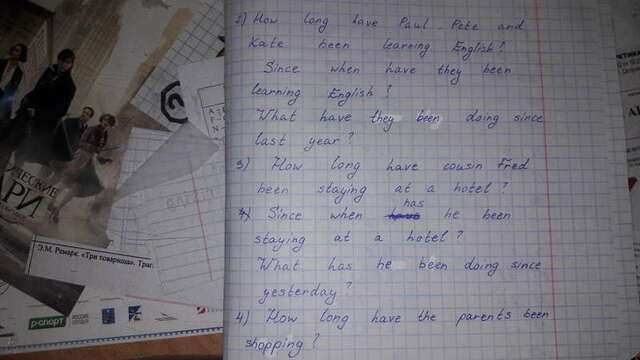 2) How long have Paul Pete and
Kate been learning English?
Since when have they been
learning English?
What have they been doing since
last year?
3) How long have cousin Fred
been staying at a hotel?
Since when has he been
staying at a hotel?
What has he been doing since
yesterday?
4) How long have the parents been
shopping?
Р-СПОРТ
Э.М. Ремарк. «Три товарища.